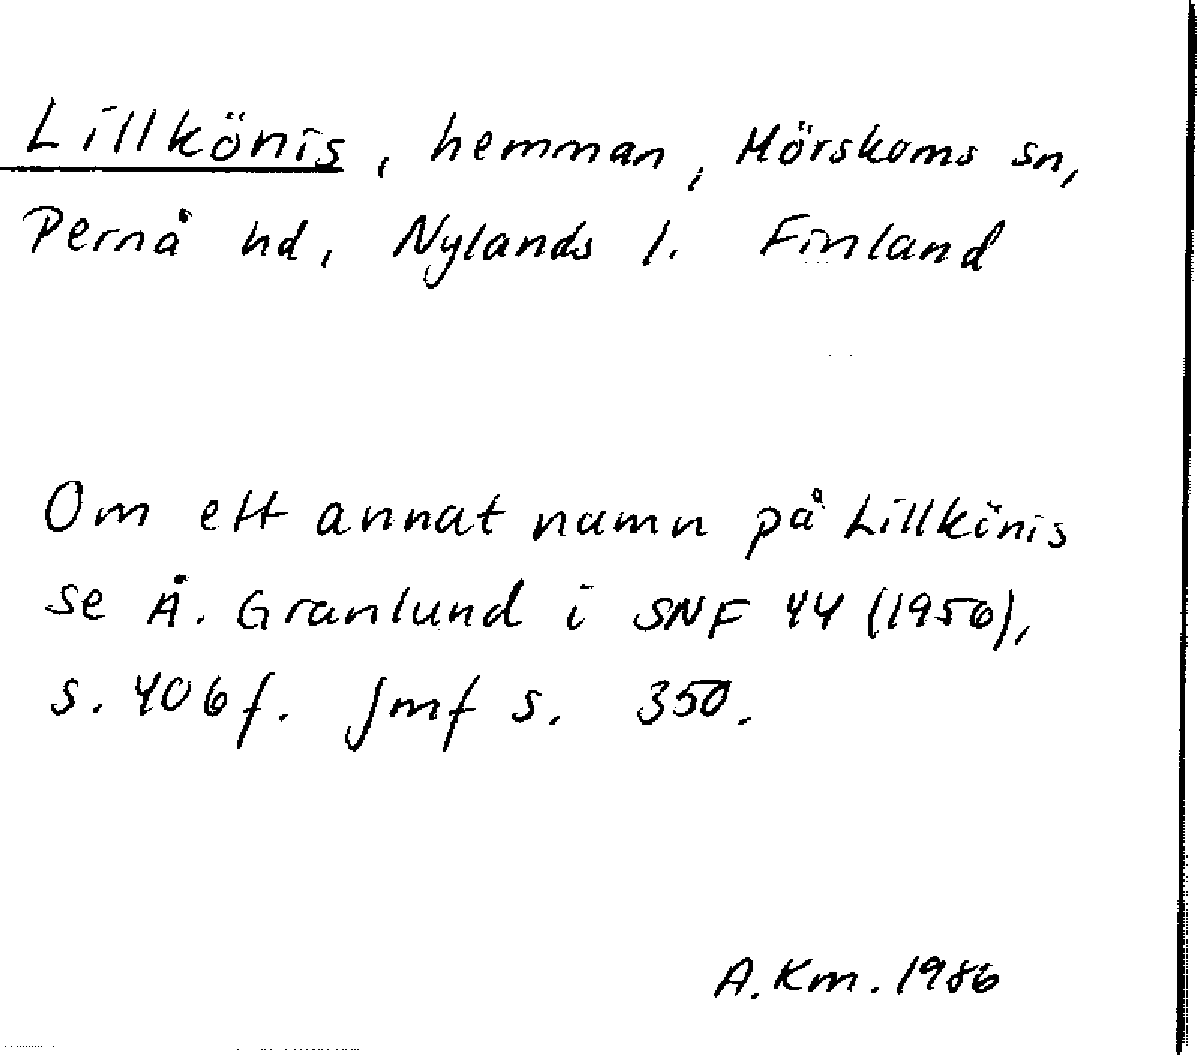 Lillkönis, hemman, Mörskoms sn,
Pernå hd, Nylands l. Finland
Om ett annat namn på Lillkönis
se Å. Granlund i SNF 44 (1956),
s. 406f. Jmf s. 350.
A.Km. 1986